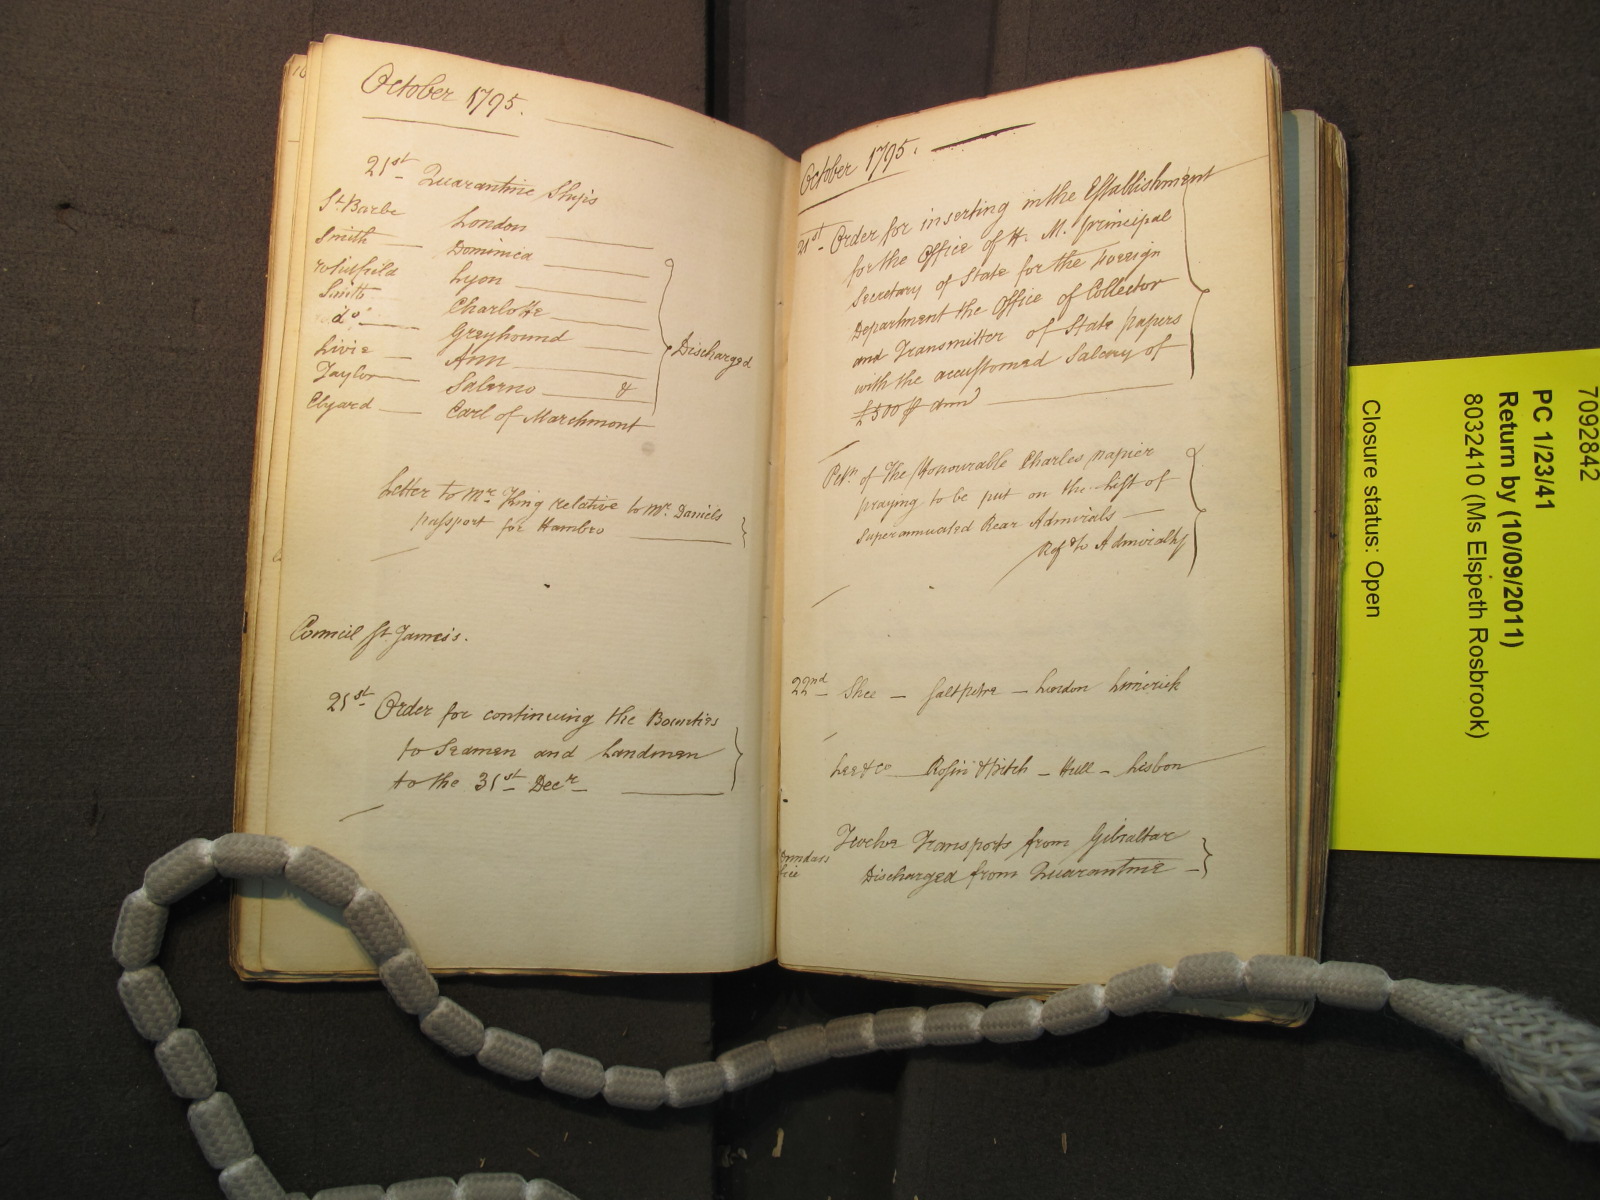 October 1795.
21st Quarantine Ships
St. Barbe London
Smith Dominica
Whitfield Lyon
Smith Charlotte
do Greyhound
Livie Ann
Taylor Salerno &
Earl of Marchmont
Discharged
Letter to Mr. King relative to Mr. Daniels
passport for Hambro
Council St. James's.
21st Order for continuing the Bounties
to Seamen and Landmen
to the 31st Decr
October 1795.
21st Order for inserting in the Establishment
for the Office of H. M. principal
Secretary of State for the Foreign
Department the Office of Collector
and Transmitter of State papers
with the accustomed Salary of
£500 ⅌ Annm
Petn. of The Honourable Charles Napier
praying to be put on the List of
Superannuated Rear Admirals
Ref'd to Admiralty
22nd Shee - Saltpetre - London Limerick
Lee & Co Rosin & Pitch - Hull - Lisbon
Twelve Transports from Gibraltar
Discharged from Quarantine
7092842
PC 1/23/41
Return by (10/09/2011)
8032410 (Ms Elspeth Rosbrook)
Closure status: Open